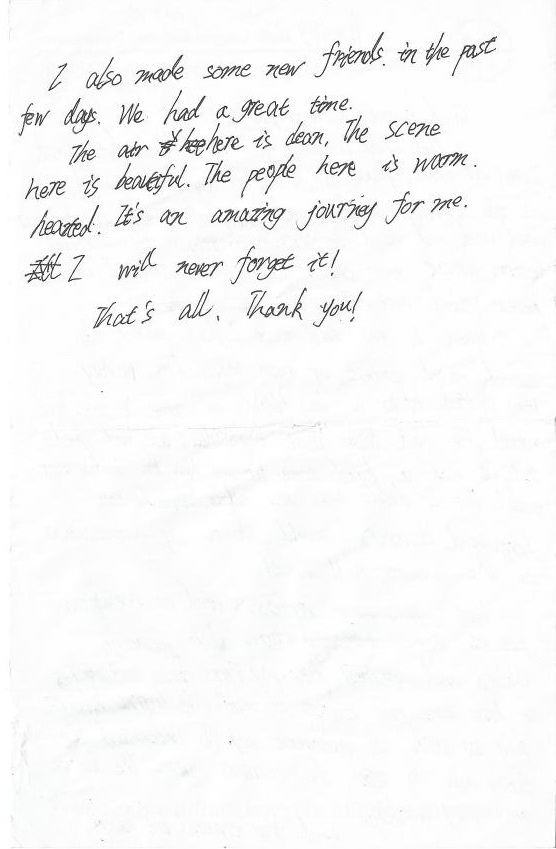 I also made some new friends. in the past
few days. We had a great time.
The air here is clean, The scene
here is beautiful. The people here is warm.
hearted. It's an amazing journey for me.
I will never forget it!
That's all. Thank you!